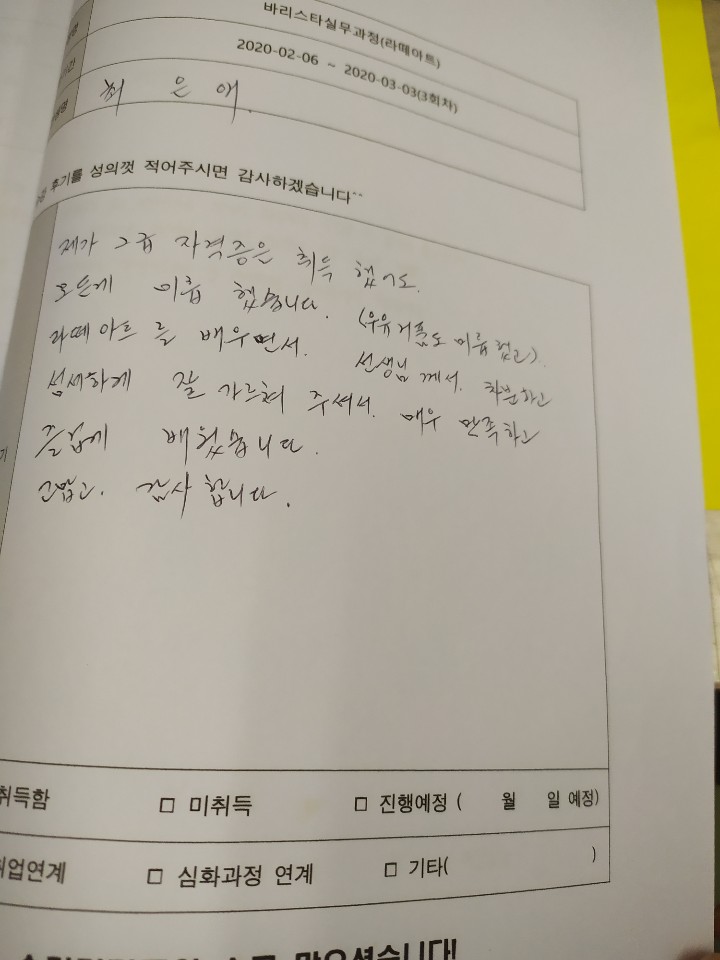 바리스타실무과정(라떼아트)
2020-02-06 ~ 2020-03-03(3회차)
최 은 애.
후기를 성의껏 적어주시면 감사하겠습니다~~
제가 2급 자격증은 취득 했어도.
모든게 미흡 했습니다. (우유거품도 미흡했고).
라떼아트를 배우면서. 선생님께서. 차분하고
섬세하게 잘 가르쳐 주셔서. 매우 만족하고
즐겁게 배웠습니다.
고맙고. 감사합니다.
취득함 □ 미취득 □ 진행예정 ( 월 일 예정)
취업연계 □ 심화과정 연계 □ 기타( )
많으셨습니다!